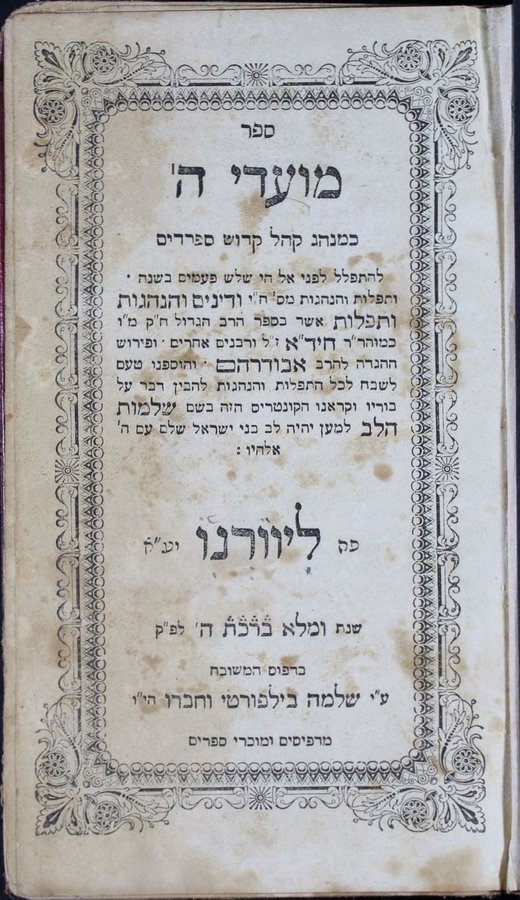 ספר
מועדי ה'
כמנהג קהל קדוש ספרדים
להתפלל לפני אל חי שלש פעמים בשנה ׳
ותפלות והנהגות מס' ח"י ודינים והנהגות
ותפלות אשר בספר הרב הגדול ח"ק מ"ו
כמוהר"ר חיד"א ז"ל ורבנים אחרים · ופירוש
ההגדה להרב אבודרהם · והוספנו טעם
לשבח לכל התפלות והנהגות להבין דבר על
בוריו וקראנו הקונטריס הזה בשם שלמות
הלב למען יהיה לב בני ישראל שלם עם ה'
אלהיו :
פה ליוורנו יע"ה
שנת ומלא ברכת ה' לפ"ק
בדפוס המשובח
ע"י שלמה בילפורטי וחברו הי"ו
מדפיסים ומוכרי ספרים